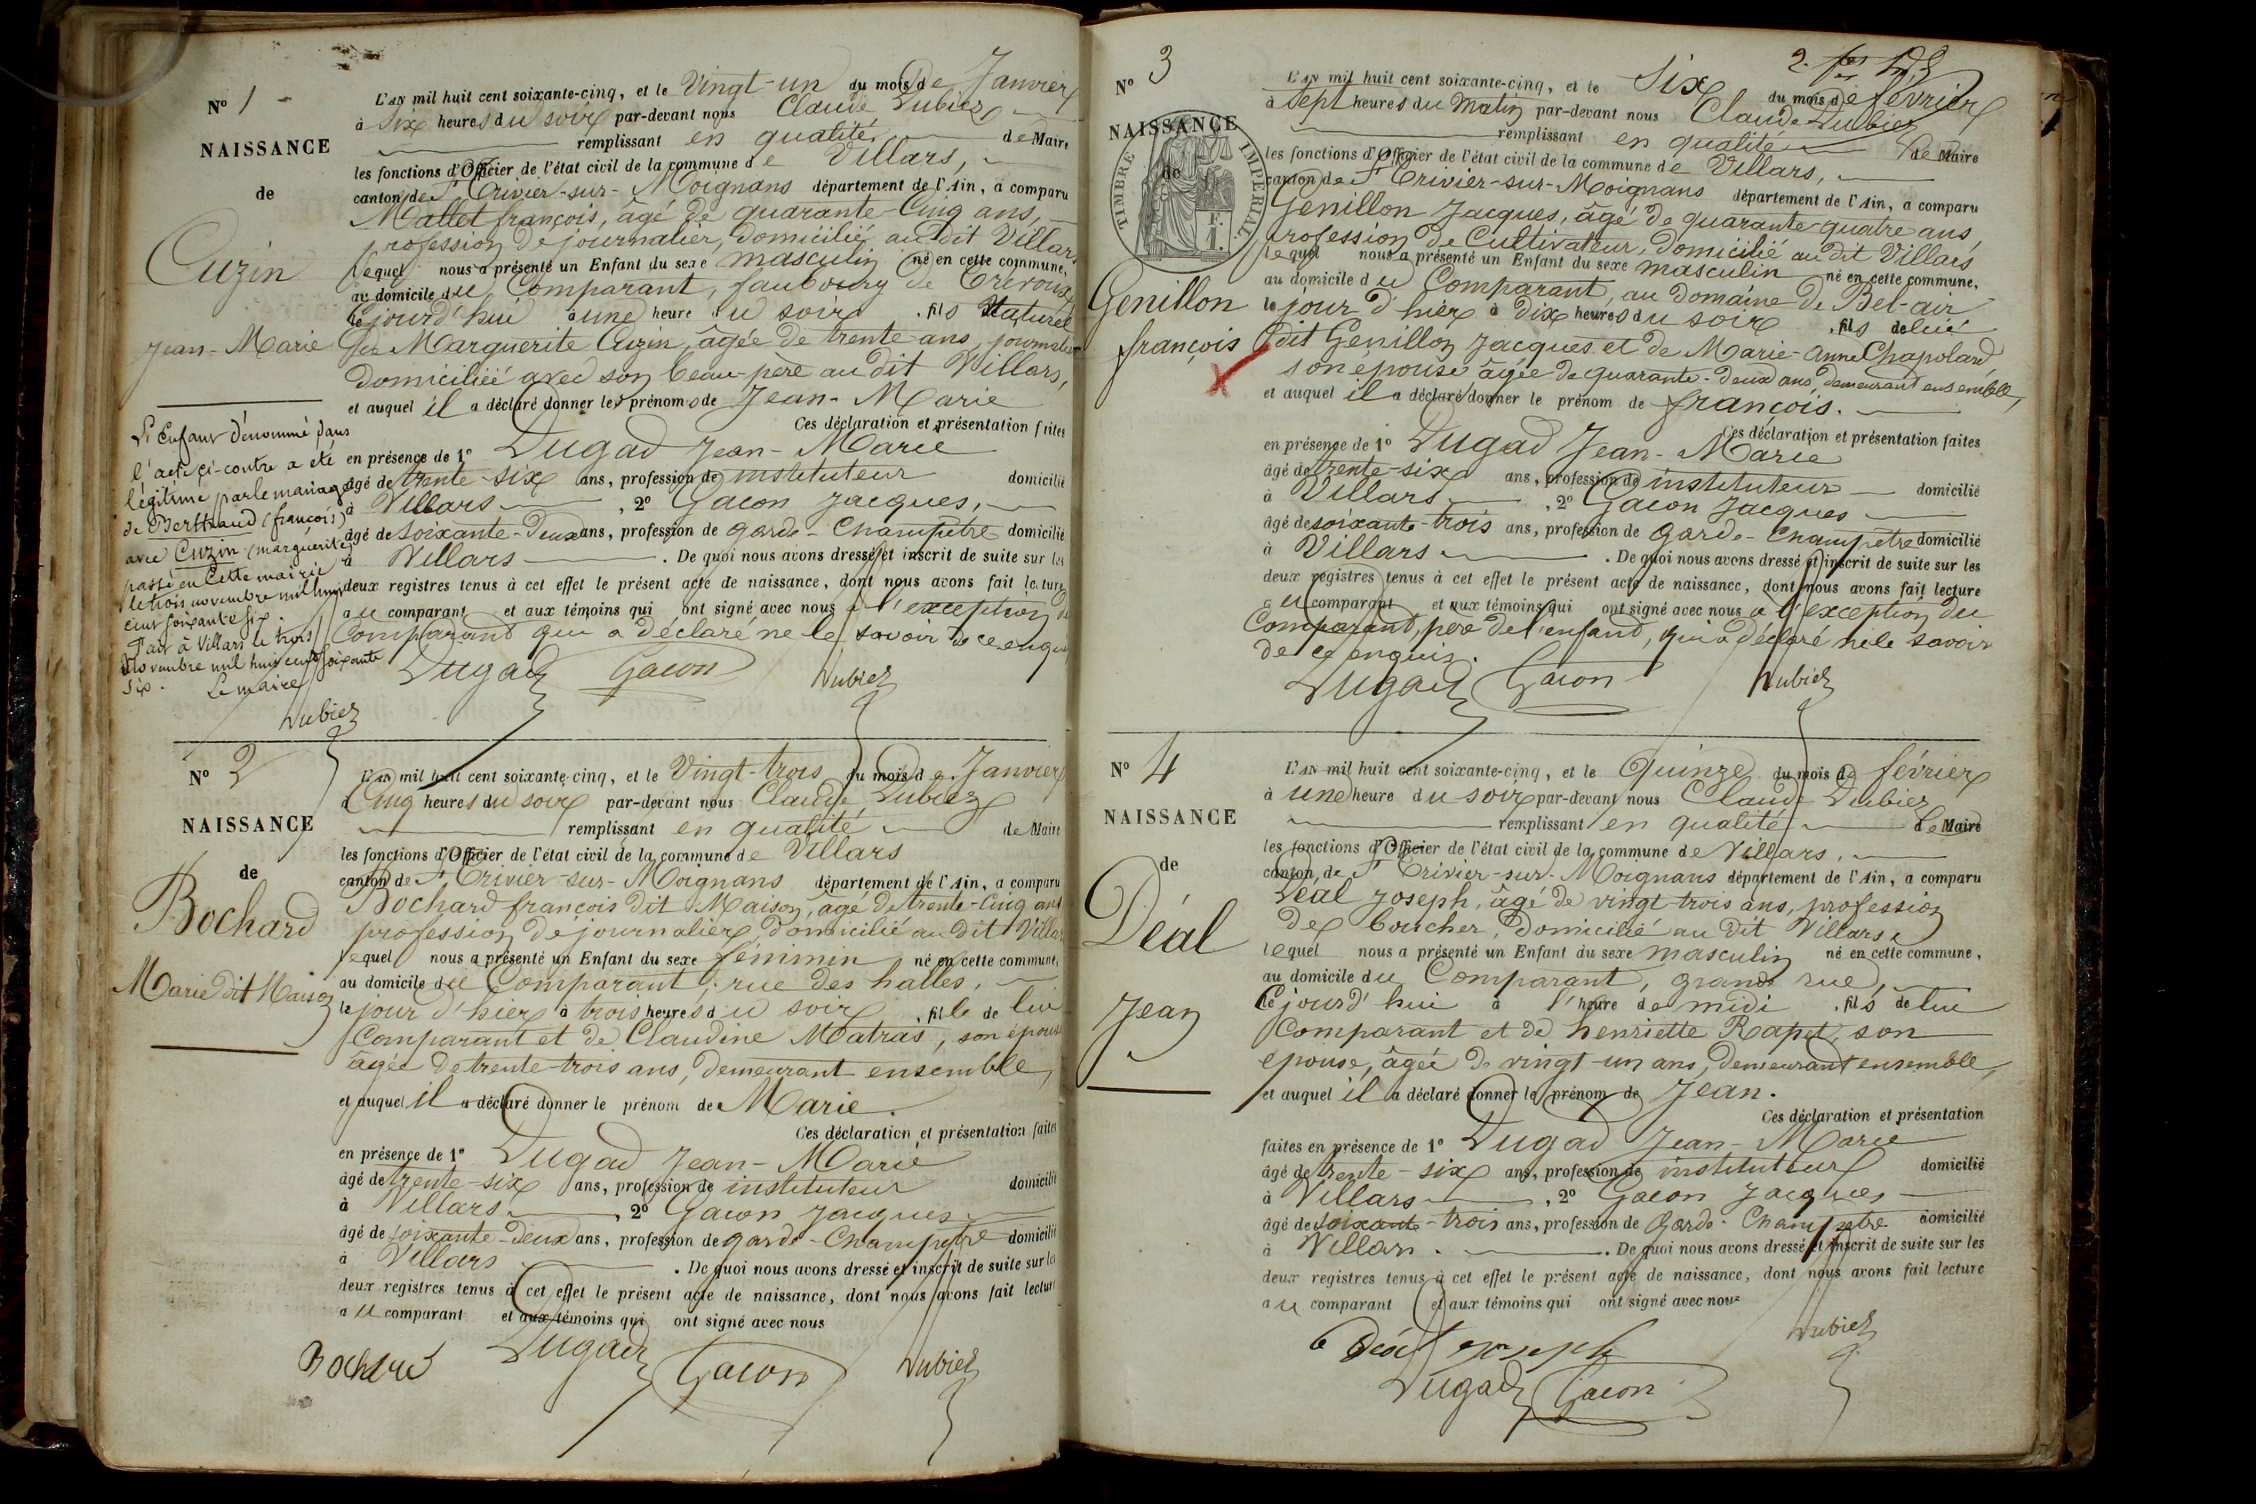 N° 1
NAISSANCE
de
Cuzin
Jean-Marie
L'AN mil huit cent soixante-cinq, et le Vingt-un du mois de Janvier
à Six heures du soir par-devant nous Claude Dubiez
remplissant en qualité de Maire
les fonctions d'Officier de l'état civil de la commune de Villars,
canton de St Trivier-sur-Moignans département de l'Ain, a comparu
Mallet françois, âgé de quarante-Cinq ans,
profession de journalier, domicilié au dit Villars
lequel nous a présenté un Enfant du sexe masculin né en cette commune,
au domicile du Comparant, faubourg de Trévoux,
Cejourd'hui à une heure du soir, fils Naturel
de Marguerite Cuzin, âgée de trente ans, journalière
domiciliée avec son beau-père au dit Villars,
et auquel il a déclaré donner les prénoms de Jean-Marie
Ces déclaration et présentation faites
en présence de 1° Dugad Jean-Marie
âgé de trente-six ans, profession de instituteur domicilié
à Villars, 2° Gacon Jacques,
âgé de soixante-deux ans, profession de garde-Champêtre domicilié
à Villars. De quoi nous avons dressé et inscrit de suite sur les
deux registres tenus à cet effet le présent acte de naissance, dont nous avons fait lecture
au comparant et aux témoins qui ont signé avec nous à l'exception du
Comparant qui a déclaré ne le savoir de ce enquis
Dugad Gacon Dubiez
L'Enfant dénommé dans
l'acte ci-contre a été
légitimé par le mariage
de Berthaud (françois)
avec Cuzin (marguerite)
passé en Cette mairie
le trois novembre mil huit
cent soixante six.
Fait à Villars le trois
Novembre mil huit cent soixante
six. Le maire
Dubiez
N° 2
NAISSANCE
de
Bochard
Marie dit Maison
L'AN mil huit cent soixante-cinq, et le Vingt-trois du mois de Janvier
à Cinq heures du soir par-devant nous Claude Dubiez
remplissant en qualité de Maire
les fonctions d'Officier de l'état civil de la commune de Villars
canton de St Trivier-sur-Moignans département de l'Ain, a comparu
Bochard françois dit Maison, âgé de trente-Cinq ans
profession de journalier, domicilié au dit Villars
lequel nous a présenté un Enfant du sexe féminin né en cette commune,
au domicile du Comparant, rue des halles,
le jour d'hier à trois heures du soir, fille de lui
Comparant et de Claudine Matras, son épouse
âgée de trente-trois ans, demeurant ensemble,
et auquel il a déclaré donner le prénom de Marie.
Ces déclaration et présentation faites
en présence de 1° Dugad Jean-Marie
âgé de trente-six ans, profession de instituteur domicilié
à Villars, 2° Gacon Jacques
âgé de soixante-deux ans, profession de garde-Champêtre domicilié
à Villars. De quoi nous avons dressé et inscrit de suite sur les
deux registres tenus à cet effet le présent acte de naissance, dont nous avons fait lecture
au comparant et aux témoins qui ont signé avec nous
Bochard Dugad Gacon Dubiez
N° 3
NAISSANCE
de
TIMBRE IMPERIAL
Genillon
françois
L'AN mil huit cent soixante-cinq, et le Six du mois de février
à Sept heures du Matin par-devant nous Claude Dubiez
remplissant en qualité de Maire
les fonctions d'Officier de l'état civil de la commune de Villars,
canton de St Trivier-sur-Moignans département de l'Ain, a comparu
Genillon Jacques, âgé de quarante-quatre ans,
profession de Cultivateur, domicilié au dit Villars
lequel nous a présenté un Enfant du sexe masculin né en cette commune,
au domicile du Comparant, au domaine de Bel-air
le jour d'hier à dix heures du soir, fils de lui
dit Genillon Jacques et de Marie-Anne Chapoland
son épouse âgée de quarante-deux ans, demeurant ensemble,
et auquel il a déclaré donner le prénom de françois.
Ces déclaration et présentation faites
en présence de 1° Dugad Jean-Marie
âgé de trente-six ans, profession de instituteur domicilié
à Villars, 2° Gacon Jacques
âgé de soixante-trois ans, profession de Garde-Champêtre domicilié
à Villars. De quoi nous avons dressé et inscrit de suite sur les
deux registres tenus à cet effet le présent acte de naissance, dont nous avons fait lecture
au comparant et aux témoins qui ont signé avec nous à l'exception du
Comparant, père de l'enfant, qui a déclaré ne le savoir
de ce enquis.
Dugad Gacon Dubiez
N° 4
NAISSANCE
de
Déal
Jean
L'AN mil huit cent soixante-cinq, et le Quinze du mois de février
à une heure du soir par-devant nous Claude Dubiez
remplissant en qualité de Maire
les fonctions d'Officier de l'état civil de la commune de Villars,
canton de St Trivier-sur-Moignans département de l'Ain, a comparu
Déal Joseph, âgé de vingt-trois ans, profession
de boucher, domicilié au dit Villars,
lequel nous a présenté un Enfant du sexe masculin né en cette commune,
au domicile du Comparant, grande rue,
Cejourd'hui à l'heure de midi, fils de lui
Comparant et de henriette Rapet, son
epouse, âgée de vingt-un ans, demeurant ensemble,
et auquel il a déclaré donner le prénom de Jean.
Ces déclaration et présentation
faites en présence de 1° Dugad Jean-Marie
âgé de trente-six ans, profession de instituteur domicilié
à Villars, 2° Gacon Jacques,
âgé de soixante-trois ans, profession de Garde-Champêtre domicilié
à Villars. De quoi nous avons dressé et inscrit de suite sur les
deux registres tenus à cet effet le présent acte de naissance, dont nous avons fait lecture
au comparant et aux témoins qui ont signé avec nous
Déal joseph Dubiez
Dugad Gacon